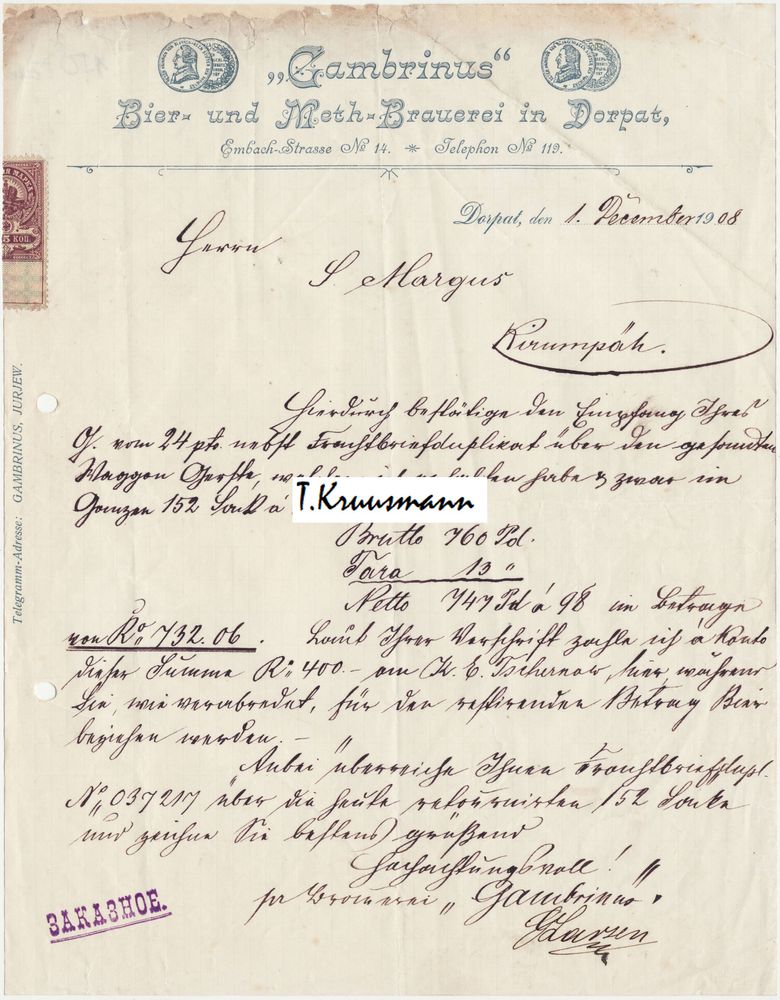 „Gambrinus“
Bier- und Meth-Brauerei in Dorpat,
Embach-Strasse № 14. * Telephon № 119.
Dorpat, den 1. December 1908
Herrn
S. Margus
Kirrumpäh.
Hierdurch bestätige den Empfang Ihres
G. vom 24 pto. nebst Frachtbriefduplikat über den gesandten
Waggon Gerste, habe & zwar im
Ganzen 152 Sack á
T. Kruusmann
Brutto 760 Pd.
Tara 13 "
Netto 747 Pd á 98 im Betrage
von Ro 732.06. Laut Ihrer Vorschrift zahle ich á Konto
dieser Summe Ro 400.- am K. E. Tschernow, hier, während
Sie, wie verabredet, für den restirenden Betrag Bier
beziehen werden. –
Anbei überreiche Ihnen Frachtbriefdupl.
No 037217 über die heute retournirten 152 Sacke
und zeichne Sie bestens grüßend
Hochachtungsvoll!
pa Brauerei „Gambrinus“.
Larsen
ЗАКАЗНОЕ.
Telegramm-Adresse: GAMBRINUS, JURJEW.
МАРКА
КОП